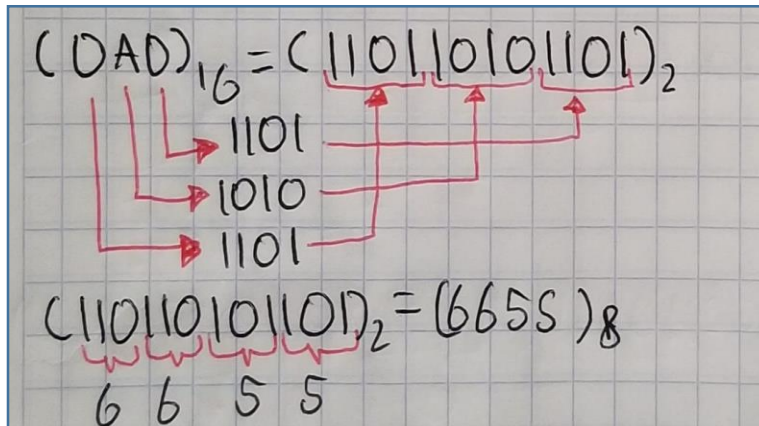 (DAD)₁₆ = (110110101101)₂
1101
1010
1101
(110110101101)₂ = (6655)₈
6 6 5 5